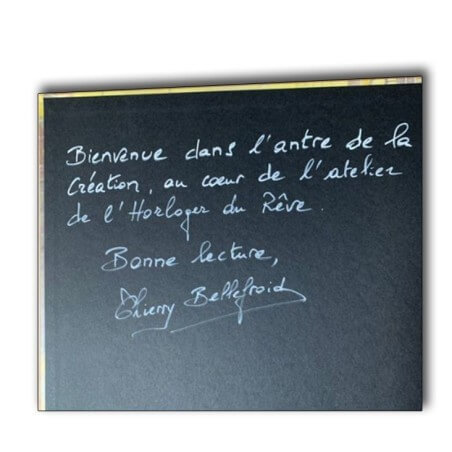 Bienvenue dans l'antre de la
Création, au cœur de l'atelier
de l'Horloger du Rêve.
Bonne lecture,
Thierry Bellefroid